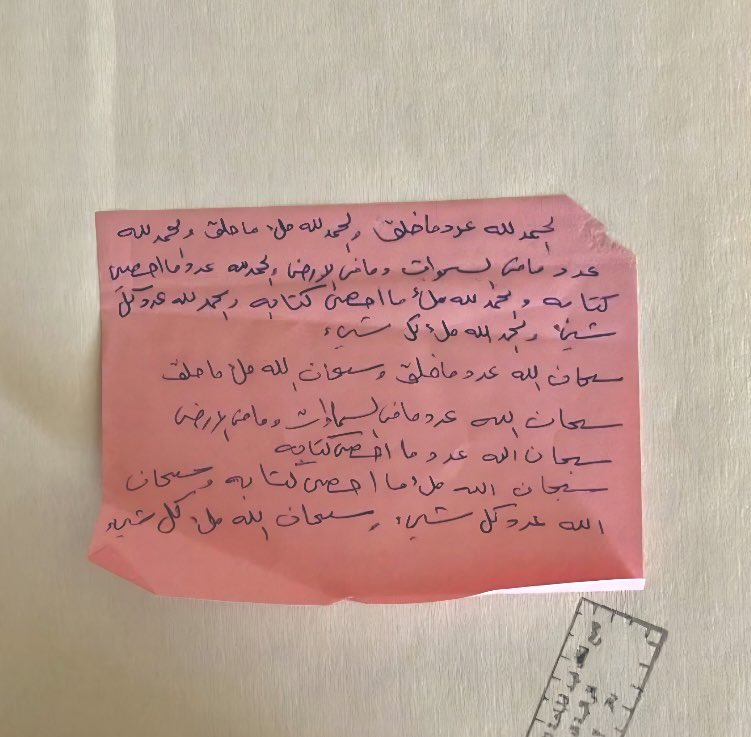 الحمد لله عدد ما خلق والحمد لله ملء ما خلق والحمد لله
عدد ما في السموات وما في الارض والحمد لله عدد ما احصى
كتابه والحمد لله ملأ ما احصى كتابه والحمد لله عدد كل
شيء والحمد الله ملء كل شيء
سبحان الله عدد ما خلق وسبحان الله ملء ما خلق
سبحان الله عدد ما في السماوات وما في الارض
سبحان الله عدد ما احصى كتابه
سبحان الله ملأ ما احصى كتابه وسبحان
الله عدد كل شيء وسبحان الله ملء كل شيء